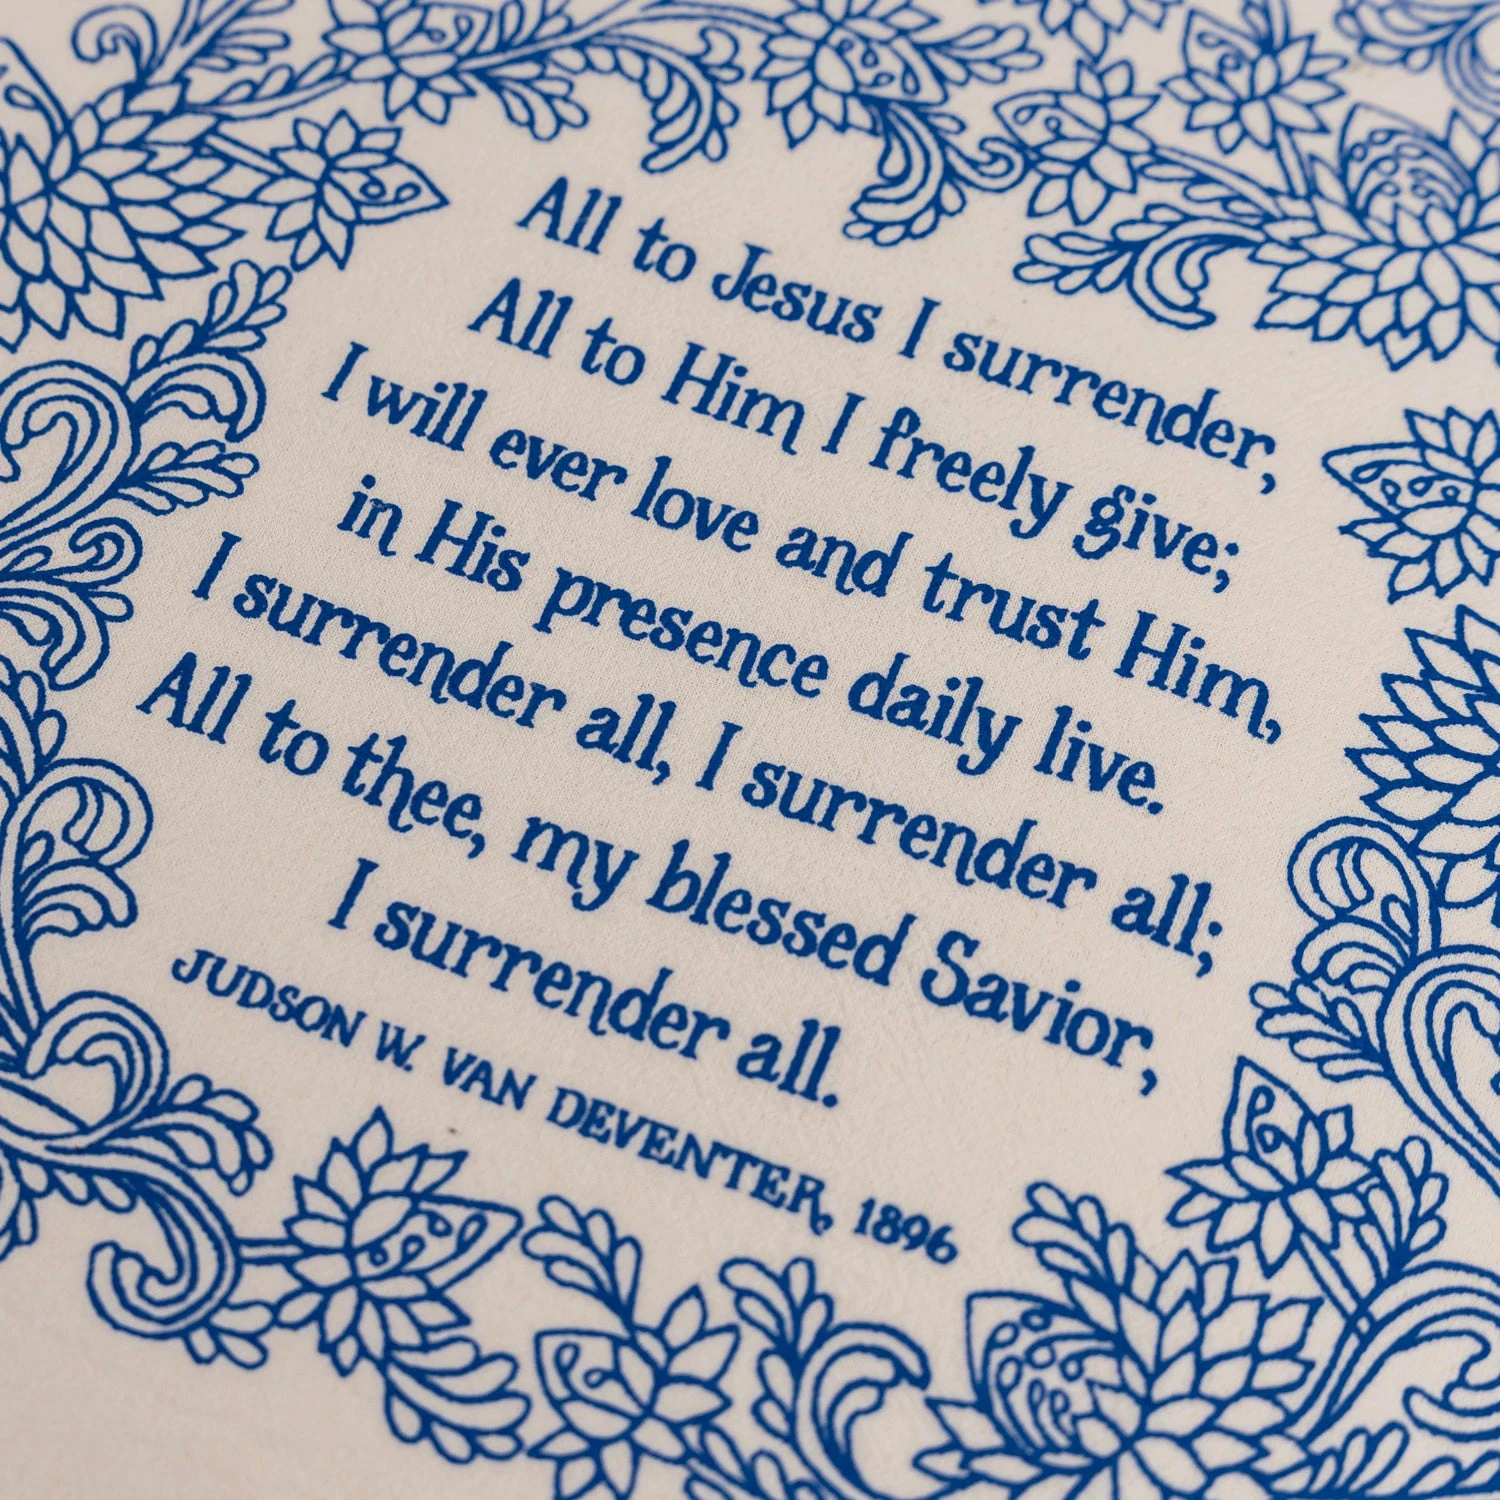 All to Jesus I surrender,
All to Him I freely give;
I will ever love and trust Him,
in His presence daily live.
I surrender all, I surrender all;
All to thee, my blessed Savior,
I surrender all.
JUDSON W. VAN DEVENTER, 1896